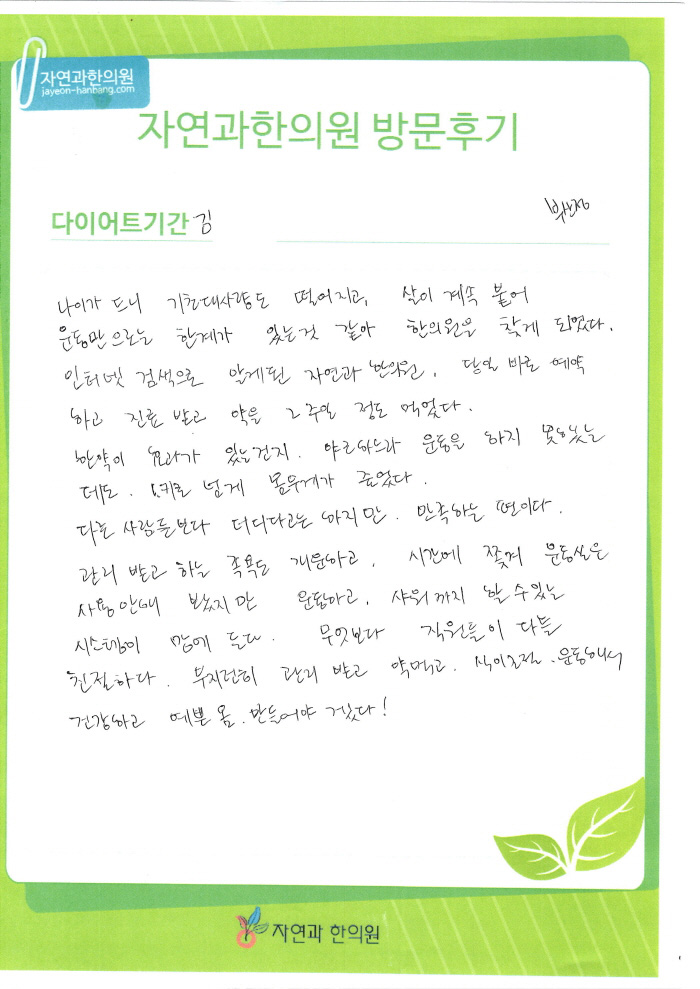 자연과한의원
jayeon-hanbang.com
자연과한의원 방문후기
다이어트기간 김
나이가 드니 기초대사량도 떨어지고, 살이 계속 붙어
운동만으로는 한계가 있는것 같아 한의원을 찾게 되었다.
인터넷 검색으로 알게된 자연과 한의원, 당일 바로 예약
하고 진료 받고 약을 2주일 정도 먹었다.
한약이 효과가 있는건지. 야근하느라 운동을 하지 못했는
데도. 키로 넘게 몸무게가 줄었다.
다른 사람들보다 더디다고는 하지만. 만족하는 편이다.
관리 받고 하는 족욕도 개운하고, 시간에 쫓겨 운동실은
사용안해 봤지만 운동하고, 샤워까지 할 수 있는
시스템이 맘에 든다. 무엇보다 직원들이 다들
친절하다. 부지런히 관리 받고 약먹고. 식이조절. 운동해서
건강하고 예쁜 몸. 만들어야 겠다!
자연과 한의원